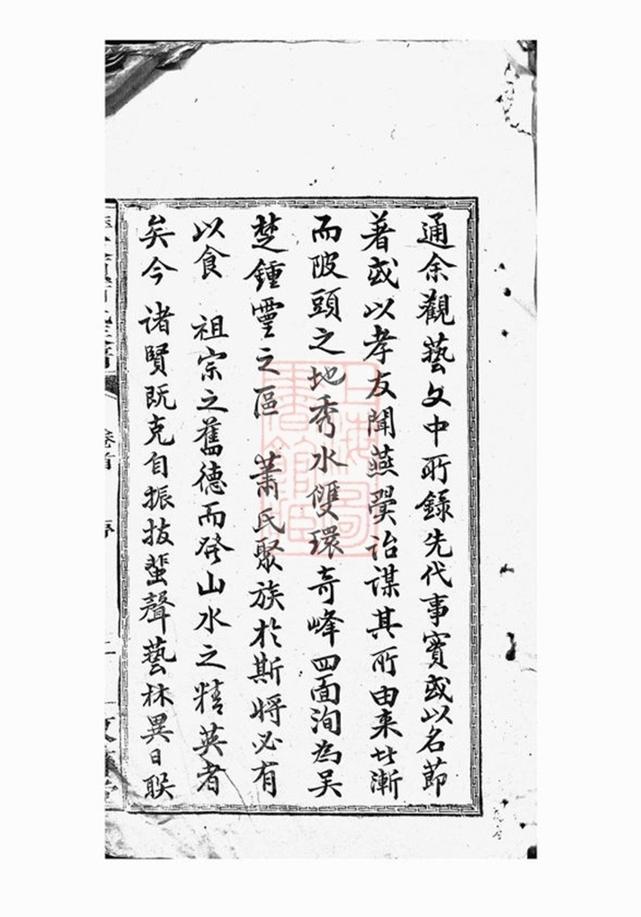 通余觀藝文中所錄先代事實或以名節
著或以孝友聞燕翼詒謀其所由来非漸
而陂頭之地秀水雙環奇峰四面洵為吴
楚鍾靈之區 蕭氏聚族於斯將必有
以食 祖宗之舊德而發山水之精英者
矣今 諸賢既克自振拔蜚聲藝林異日联
卷首 序
上海圖書館藏